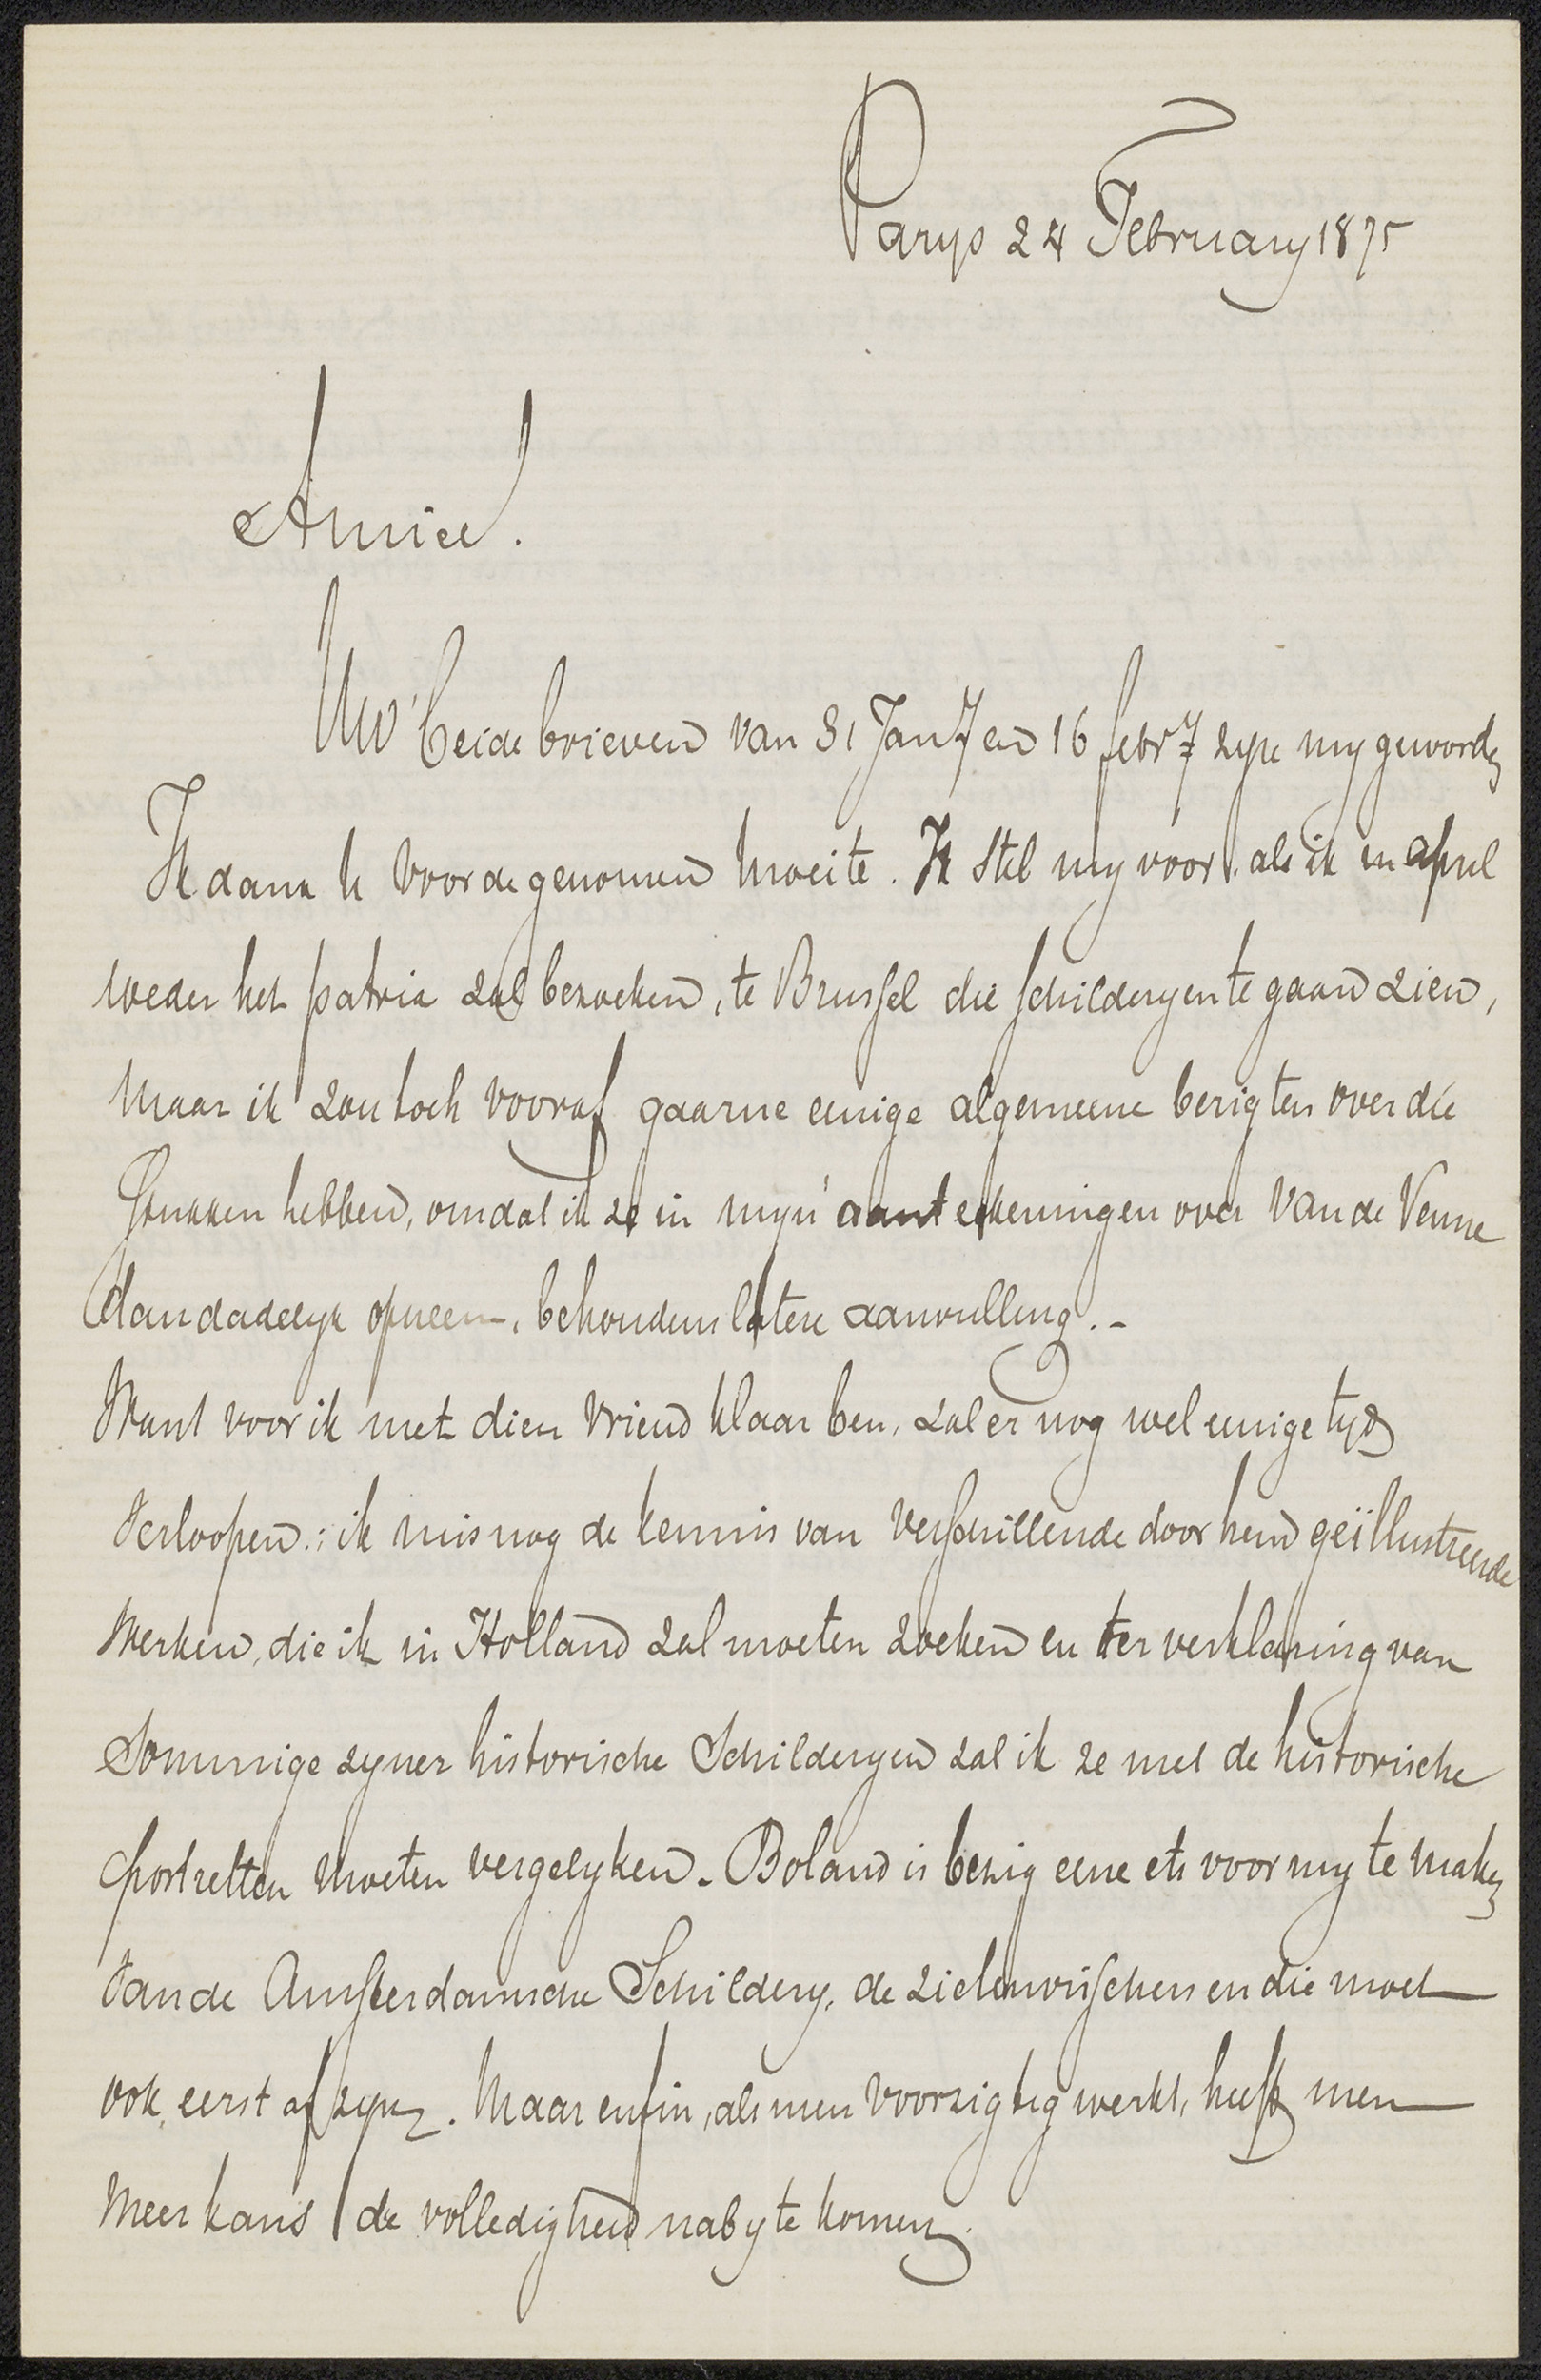 Parys 24 February 1875
Amice!
Uw' beide brieven van 31 Jany en 16 febry zyn my geworden
Ik dank U voor de genomen moeite. Ik stel my voor, als ik in april
weder het patria zal bezoeken, te Brussel die schilderyen te gaan zien,
maar ik zou toch vooraf gaarne eenige algemeene berigten over die
stukken hebben, omdat ik ze in myn' aanteekeningen over Van de Venne
dan dadelyk opneem, behoudens latere aanvulling.-
Want voor ik met dien vriend klaar ben, zal er nog wel eenige tyd
verloopen: ik mis nog de kennis van verschillende door hem geïllustreerde
werken, die ik in Holland zal moeten zoeken en ter verklaring van
sommige zyner historische Schilderyen zal ik ze met de historische
portretten moeten vergelyken. Boland is bezig eene ets voor my te maken
van de Amsterdamsche Schildery, de zielenvisschers en die moet
ook eerst af zyn. Maar enfin, als men voorzigtig werkt, heeft men
meer kans de volledigheid naby te komen.